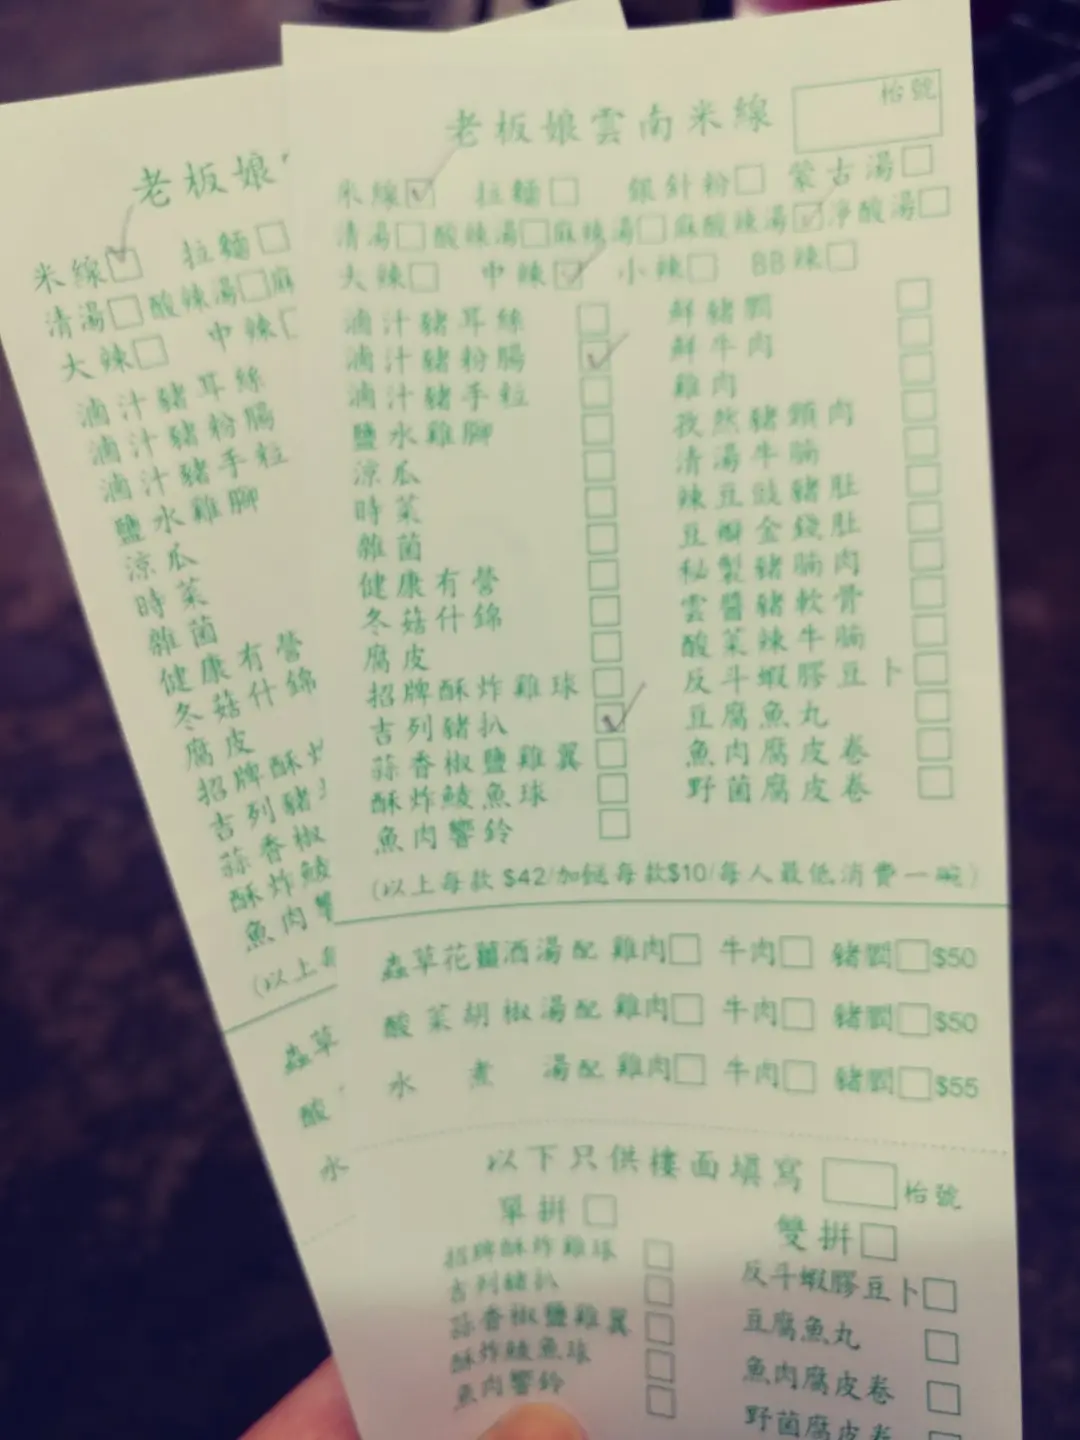 老板娘雲南米線
枱號
米線 拉麵 銀針粉 蒙古湯
清湯 酸辣湯 麻辣湯 麻酸辣湯 淨酸湯
大辣 中辣 小辣 BB辣
滷汁豬耳絲
滷汁豬粉腸
滷汁豬手粒
鹽水雞腳
涼瓜
時菜
雜菌
健康有營
冬菇什錦
腐皮
招牌酥炸雞球
吉列豬扒
蒜香椒鹽雞翼
酥炸鯪魚球
魚肉響鈴
鮮豬膶
鮮牛肉
雞肉
孜然豬頸肉
清湯牛腩
辣豆豉豬肚
豆瓣金錢肚
秘製豬腩肉
雲醬豬軟骨
酸菜辣牛腩
反斗蝦膠豆卜
豆腐魚丸
魚肉腐皮卷
野菌腐皮卷
(以上每款$42/加餸每款$10/每人最低消費一碗)
蟲草花薑酒湯配 雞肉 牛肉 豬膶 $50
酸菜胡椒湯配 雞肉 牛肉 豬膶 $50
水煮湯配 雞肉 牛肉 豬膶 $55
以下只供樓面填寫 枱號
單拼
招牌酥炸雞球
吉列豬扒
蒜香椒鹽雞翼
酥炸鯪魚球
魚肉響鈴
雙拼
反斗蝦膠豆卜
豆腐魚丸
魚肉腐皮卷
野菌腐皮卷
老板娘
米線 拉麵
清湯 酸辣湯 麻
大辣 中辣
滷汁豬耳絲
滷汁豬粉腸
滷汁豬手粒
鹽水雞腳
涼瓜
時菜
雜菌
健康有營
冬菇什錦
腐皮
招牌酥炸
吉列豬
蒜香椒
酥炸鯪
魚肉響
(以上每
蟲草
酸
水